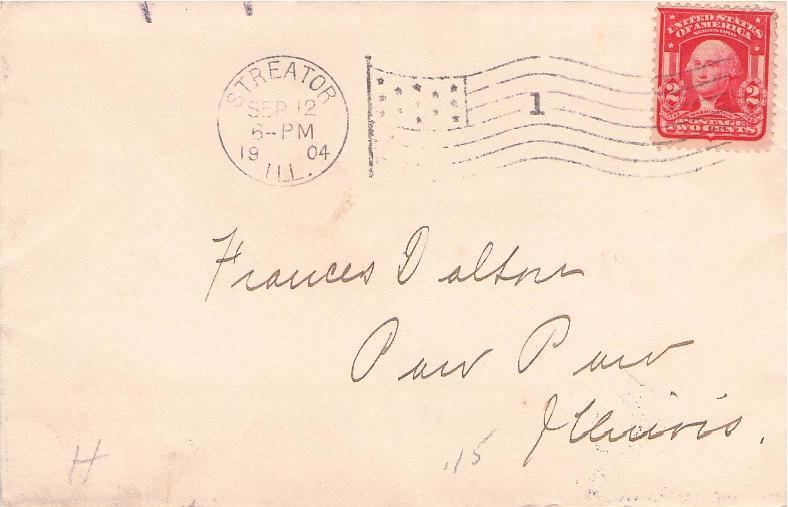 STREATOR
SEP 12
6-PM
1904
ILL.
1
UNITED STATES
OF AMERICA
SERIES 1902
2 2
WASHINGTON
POSTAGE
TWO CENTS
Frances Dalton
Paw Paw
Illinois.
H
.15